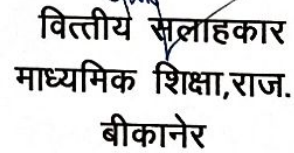 वित्तीय सलाहकार
माध्यमिक शिक्षा,राज.
बीकानेर